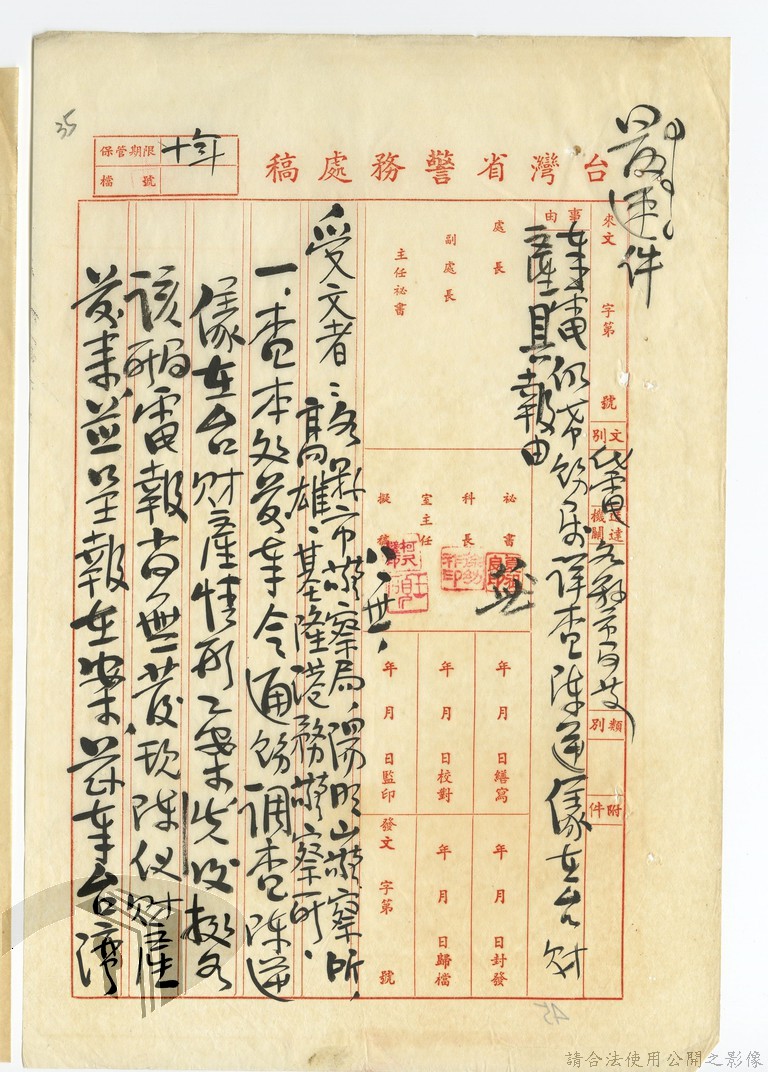 最速件
台灣省警務處稿
保管期限
十年
檔號
35
來文 字第 號
文別
代電
送達機關
各縣市局長
類別
附件
事由
奉電仍希飭屬詳查陳逆儀在台財
產具報由
處長
副處長
主任祕書
祕書
科長
室主任
擬稿
八、卅、
年 月 日繕寫
年 月 日校對
年 月 日監印
年 月 日封發
年 月 日歸檔
發文 字第 號
受文者：各縣市警察局、陽明山警察所、
高雄、基隆港務警察所、
一、查本處前奉令通飭調查陳逆
儀在台財產情形乙案先後據各
該局電報尚無發現陳儀財產
並呈報在案、茲奉台灣
45
請合法使用公開之影像